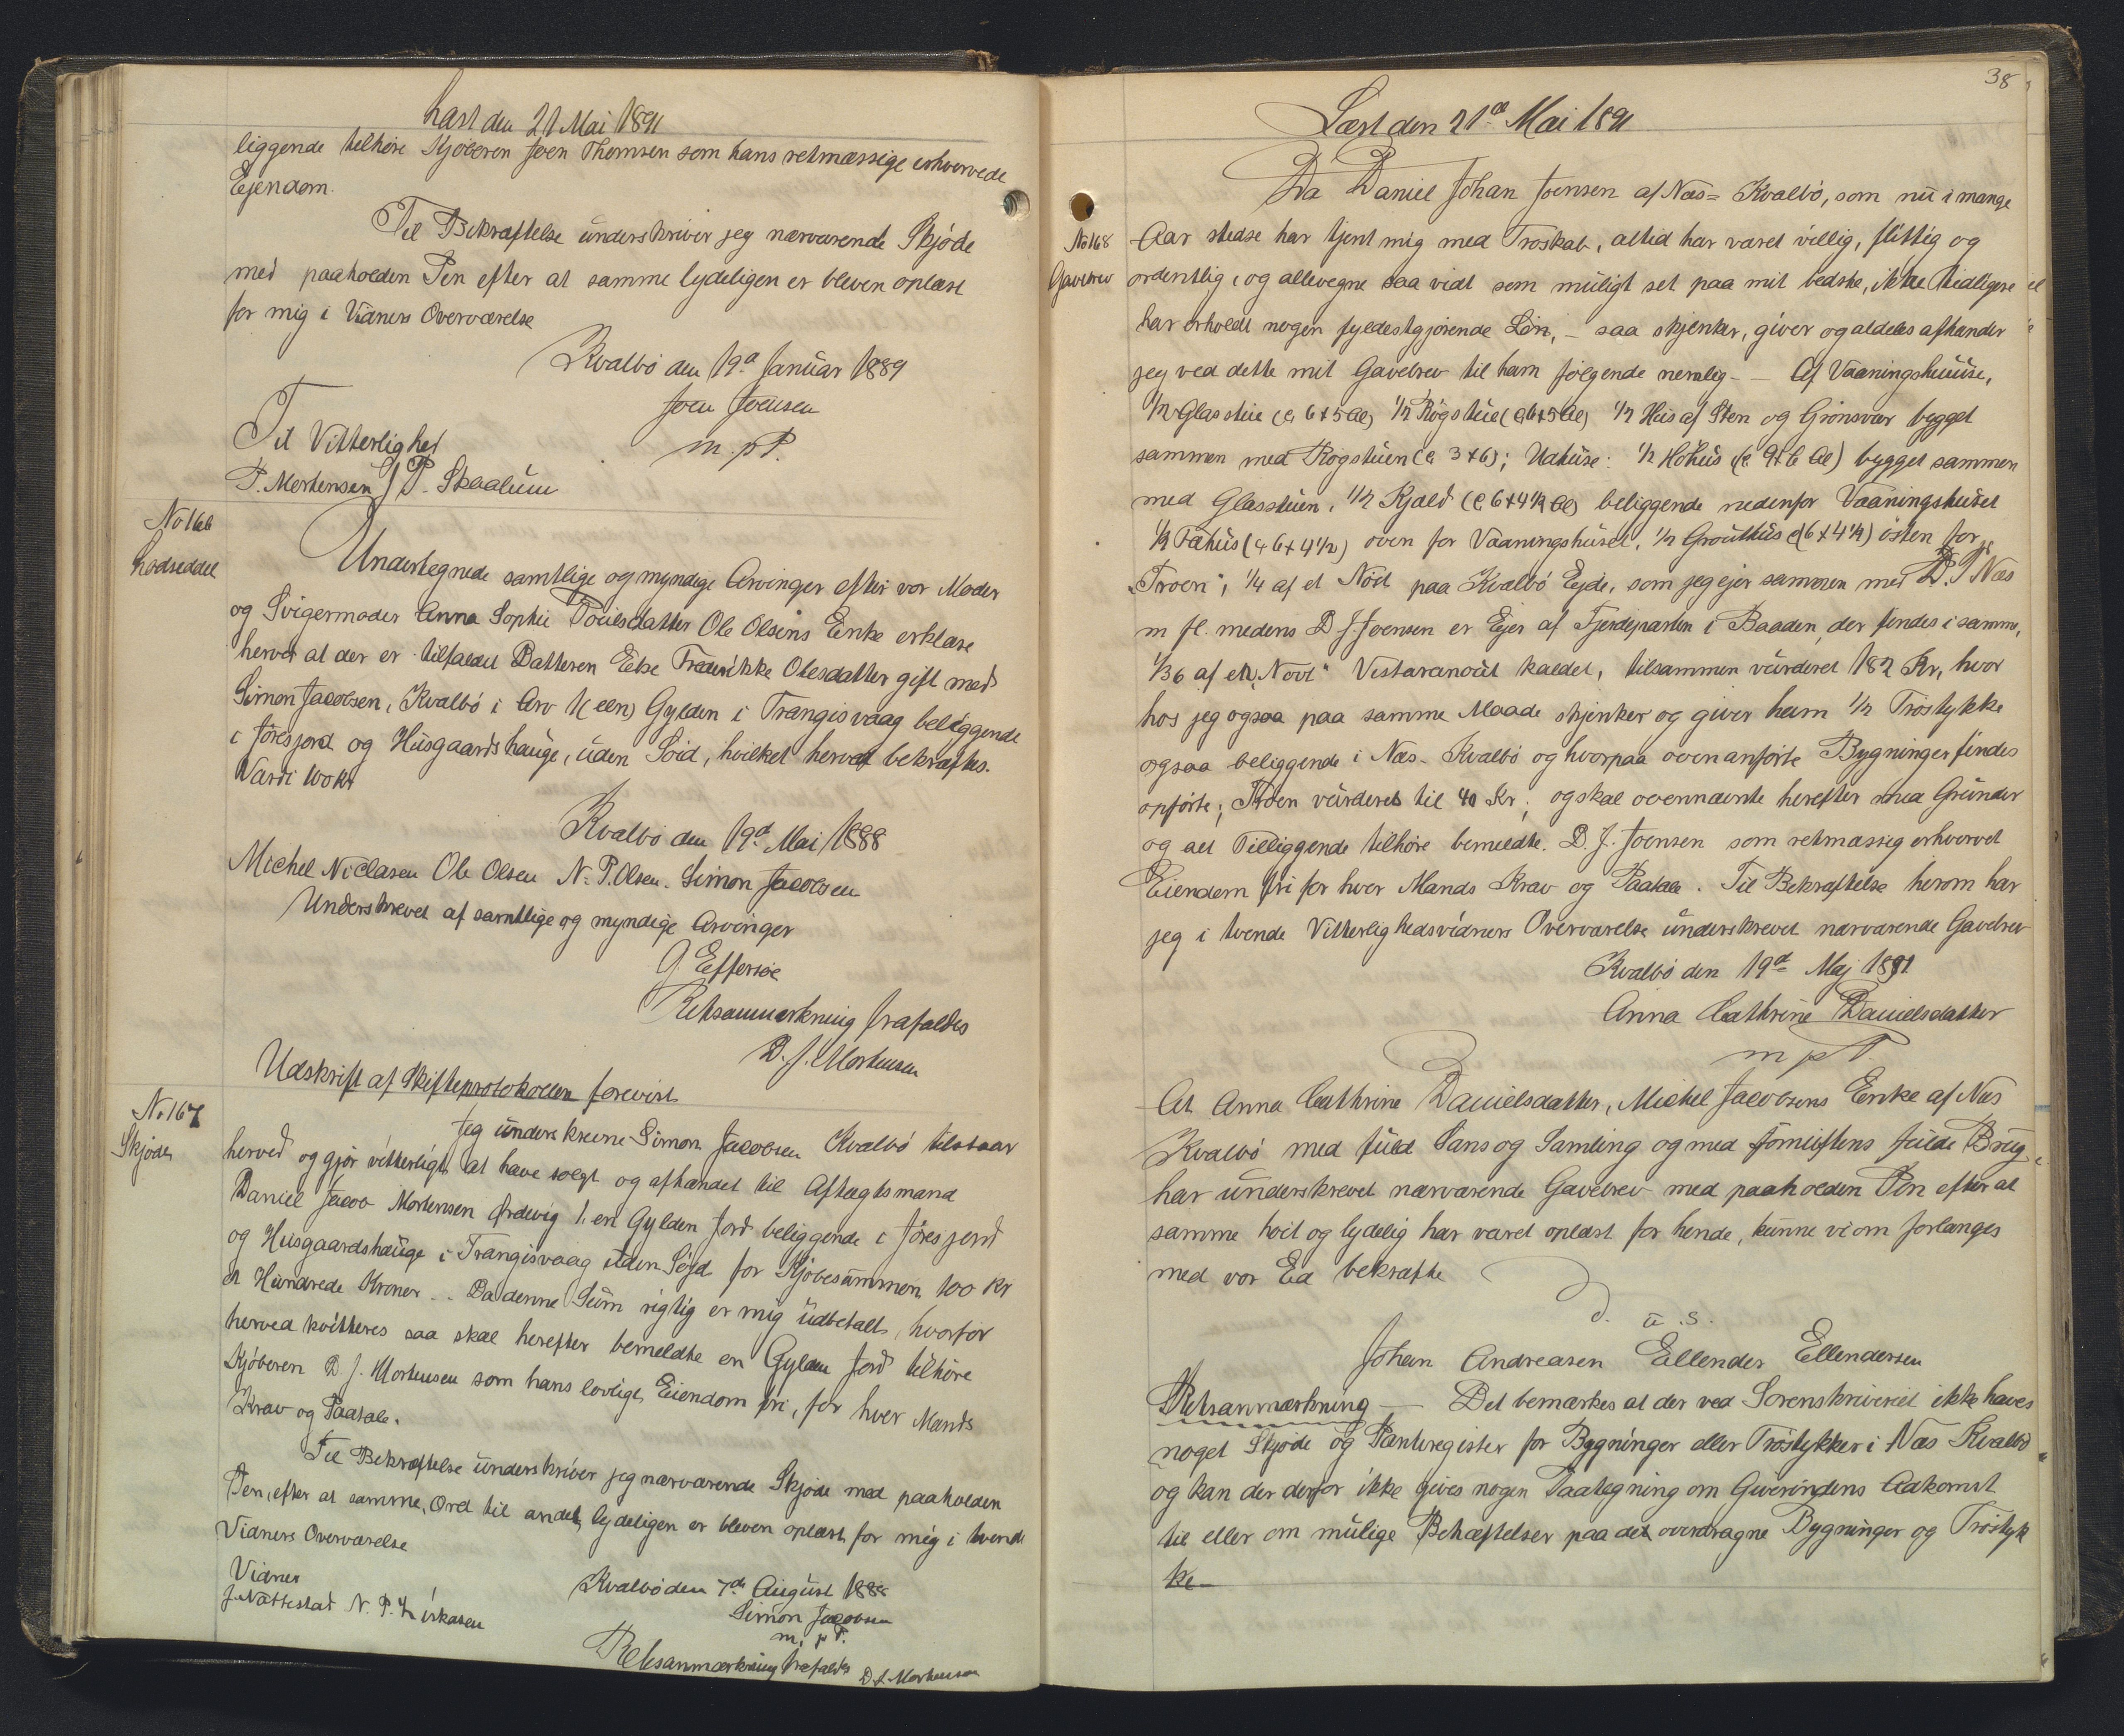 Læst den 21 Mai 1891
liggende tilhøre Kjøberen Joen Thomsen som hans retmæssige erhvervede
Ejendom.
Til Bekræftelse underskriver jeg nærværende Skjøde
med paaholden Pen efter at samme lydeligen er bleven oplæst
for mig i Vidners Overværelse
Kvalbø den 19d Januar 1889
Joen Joensen
m. p P.
Til Vitterlighed
P. Mortensen J P. Skaalum
No 166
Lodseddel
Undertegnede samtlige og myndige Arvinger efter vor Moder
og Svigermoder Anna Sophie Poulsdatter Ole Olsens Enke erklære
herved at der er tilfaldet Datteren Else Fredrikke Olesdatter gift med
Simon Jacobsen, Kvalbø i Arv 1 (een) Gylden i Trangisvaag beliggende
i Jøresjord og Husgaardshauge, uden Soid, hvilket herved bekræftes.
Værdi 100 Kr
Kvalbø den 19d Mai 1888
Michel Niclasen Ole Olsen N. P. Olsen. Simon Jacobsen
Underskrevet af samtlige og myndige Arvinger
G Effersøe
Retsanmærkning frafaldes
D. J. Mortensen
Udskrift af Skifteprotokollen forevist
No 167
Skjøde
Jeg underskrevne Simon Jacobsen Kvalbø tilstaar
herved og gjør vitterligt at have solgt og afhændet til Aftægtsmand
Daniel Jacob Mortensen Ørdevig 1, en Gylden Jord beliggende i Jøresjord
og Husgaardshauge i Trangisvaag uden Sojd for Kjøbesummen 100 Kr
et Hundrede Kroner .. Da denne Sum rigtig er mig udbetalt, hvorfor
herved kvitteres saa skal herefter bemeldte en Gylden Jord tilhøre
Kjøberen D J. Mortensen som hans lovlige Eiendom fri, for hver Mands
Krav og Paatale.
Til Bekræftelse underskriver jeg nærværende Skjøde med paaholden
Pen, efter at samme, Ord til andet, lydeligen er bleven oplæst for mig i tvende
Vidners Overværelse
Kvalbø den 7de August 1888
Vidner
J. Nattestad N. P.
Simon Jacobsen
m. p P.
Retsanmærkning frafaldes D. J. Mortensen
38
Læst den 21de Mai 1891
No 168
Gavebrev
Da Daniel Johan Joensen af Næs = Kvalbø, som nu i mange
Aar stedse har tjent mig med Troskab, altid har været villig, flittig og
ordentlig, og allevegne saa vidt som muligt set paa mit bedste, ikke tidligere
har erholdt nogen fyldestgjørende Løn, – saa skjenker, giver og aldeles afhænder
jeg ved dette mit Gavebrev til ham følgende nemlig – – Af Vaaningshuuse,
1/2 Glasstue (a 6 + 5 Al) 1/2 Røgstue (a 6+5 Al) 1/2 Hus af Sten og Grønsvær bygget
sammen med Røgstuen (a 3 + 6); Udhuse: 1/2 Høhus (a 9 + 6 Al) bygget sammen
med Glasstuen, 1/2 Kjald (a 6 + 4 1/2 Al) beliggende nedenfor Vaaningshuset
1/2 Fæhus (a 6 + 4 1/2) oven for Vaaningshuset, 1/2 Grouthus (a 6 + 4 1/2) østen for
"Troen", 1/4 af et Nöst paa Kvalbø Eyde, som jeg ejer sammen med D. J Næs
m fl. medens D J. Joensen er Ejer af Fjerdeparten i Baaden, der findes i samme,
1/36 af et "Növt" Vestaranövt kaldet, tilsammen vurderet 182 Kr, hvor
hos jeg ogsaa paa samme Maade skjenker og giver ham 1/2 Trøstykke
ogsaa beliggende i Næs – Kvalbø og hvorpaa ovenanførte Bygninger findes
opførte; Troen vurderet til 40 Kr; og skal ovennævnte herefter med Grunder
og alt Tilliggende tilhøre bemeldte. D. J. Joensen som retmæssig erhvervet
Eiendom fri for hver Mands Krav og Paatale. Til Bekræftelse herom har
jeg i tvende Vitterlighedsvidners Overværelse underskrevet nærværende Gavebrev
Kvalbø den 19d Maj 1891
Anna Cathrine Danielsdatter
m p P.
At Anna Cathrine Danielsdatter, Michel Jacobsens Enke af Næs
Kvalbø med fuld Sans og Samling og med Fornuftens fulde Brug
har underskrevet nærværende Gavebrev med paaholden Pen efter at
samme høit og lydelig har været oplæst for hende, kunne vi om forlanges
med vor Ed bekræfte
D. u. s.
Johan Andreasen Ellender Ellendersen
Retsanmærkning — Det bemærkes at der ved Sorenskriveriet ikke haves
noget Skjøde og Panteregister for Bygninger eller Trøstykker i Næs Kvalbø
og kan der derfor ikke gives nogen Paategning om Giverindens Adkomst
til eller om mulige Behæftelser paa det overdragne Bygninger og Trøstyk
ke —